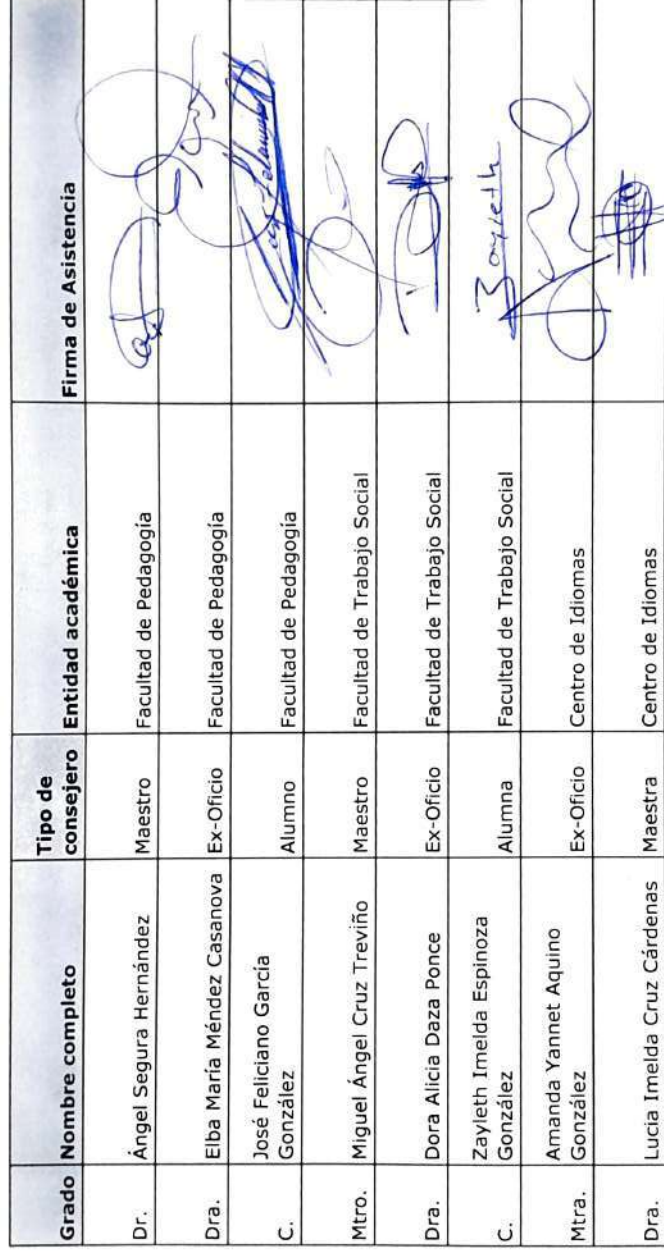 Grado Nombre completo Tipo de consejero Entidad académica Firma de Asistencia
Dr. Ángel Segura Hernández Maestro Facultad de Pedagogía
Dra. Elba María Méndez Casanova Ex-Oficio Facultad de Pedagogía
C. José Feliciano García González Alumno Facultad de Pedagogía
Mtro. Miguel Ángel Cruz Treviño Maestro Facultad de Trabajo Social
Dra. Dora Alicia Daza Ponce Ex-Oficio Facultad de Trabajo Social
C. Zayleth Imelda Espinoza González Alumna Facultad de Trabajo Social Zayleth
Mtra. Amanda Yannet Aquino González Ex-Oficio Centro de Idiomas
Dra. Lucia Imelda Cruz Cárdenas Maestra Centro de Idiomas